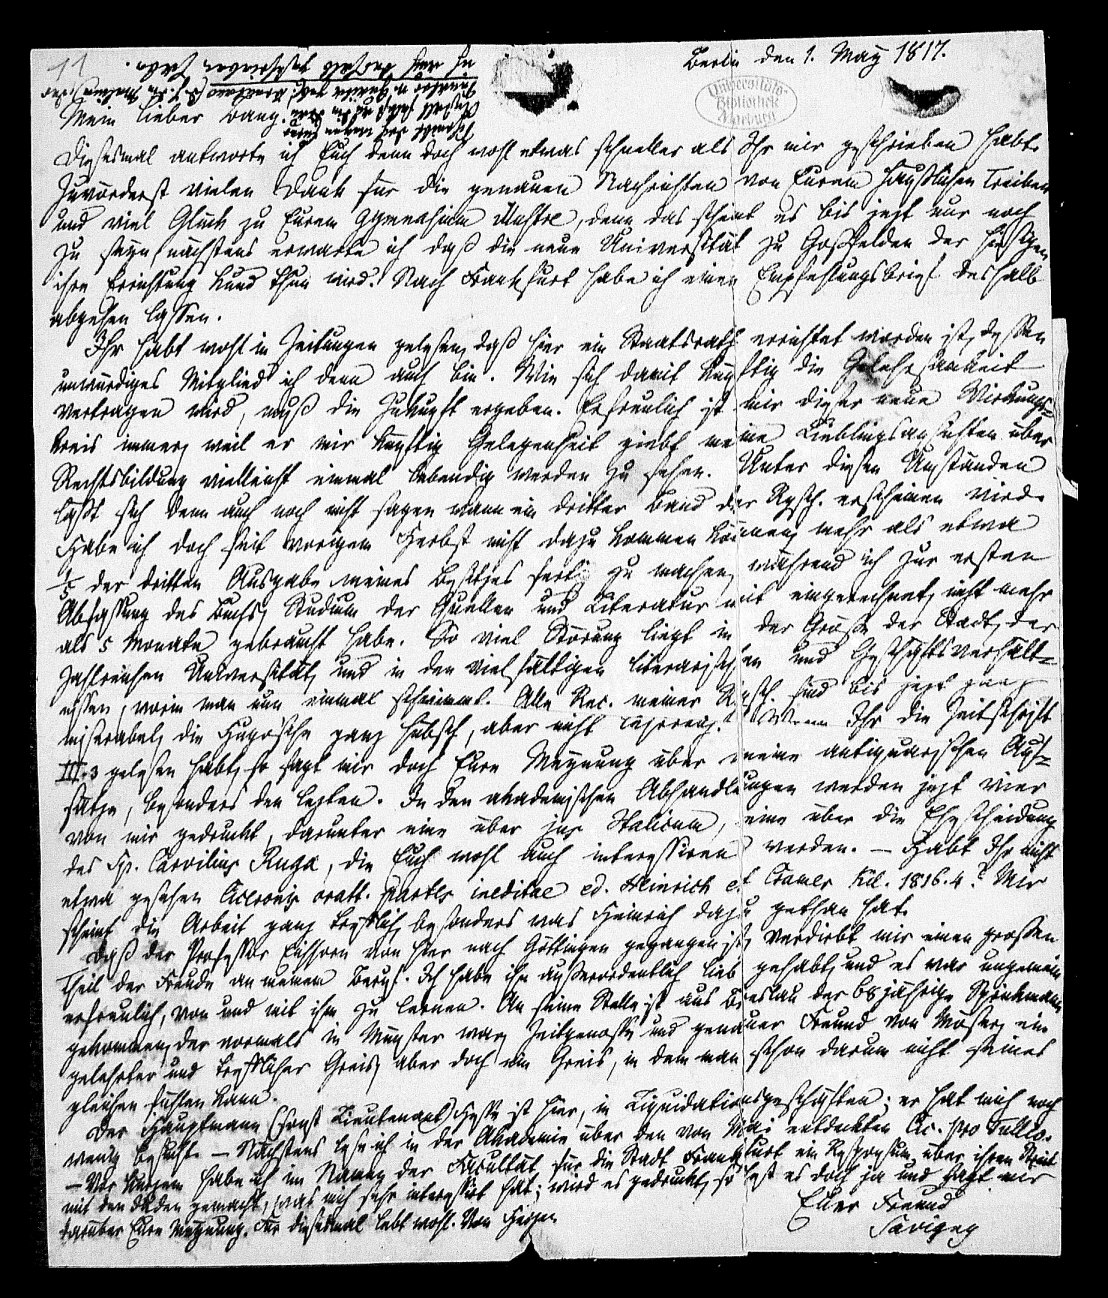 11
Berlin den 1. May 1817.
Universitäts-
Bibliothek
Marburg
Mein lieber Bang.
Diesesmal antworte ich Euch denn doch wohl etwas schneller als Ihr mir geschrieben habt.
Zuvörderst vielen Dank für die genauen Nachrichten von Eurem häuslichen Treiben
und viel Glück zu Eurem Gymnasium, denn das scheint es bis jezt nur noch
zu seyn, nächstens erwarte ich daß die neue Universität zu Goßfelden der hiesigen
ihre Errichtung kund thun wird. Nach Frankfurt habe ich einen Empfehlungsbrief deshalb
abgehen lassen.
Ihr habt wohl in Zeitungen gelesen, daß hier ein Staatsrath errichtet worden ist, dessen
unwürdiges Mitglied ich denn auch bin. Wie sich damit künftig die Gelehrsamkeit
vertragen wird, muß die Zukunft ergeben. Erfreulich ist mir dieser neue Wirkungs-
kreis immer, weil er mir künftig Gelegenheit giebt meine Lieblingsansichten über
Rechtsbildung vielleicht einmal lebendig werden zu sehen. Unter diesen Umständen
läßt sich denn auch noch nicht sagen wann ein dritter Band der Rgsch. erscheinen wird.
Habe ich doch seit vorigem Herbst nicht dazu kommen können, mehr als etwa
1/5 der dritten Ausgabe meines Besitzes fertig zu machen, während ich zur ersten
Abfassung des Buchs, Studium der Quellen und Literatur mit eingerechnet, nicht mehr
als 5 Monate gebraucht habe. So viel Störung liegt in der Größe der Stadt, der
zahlreichen Universität, und in den vielfältigen literarischen und Geschäftsverhält-
nissen, worin man nun einmal schwimmt. Alle Rec. meiner Rgsch. sind bis jezt ganz
miserabel, die Hugosche ganz hübsch, aber nicht lehrreich. Wenn Ihr die Zeitschrift
III. 3 gelesen habt, so sagt mir doch Eure Meynung über meine antiquarischen Auf-
sätze, besonders den lezten. In den akademischen Abhandlungen werden jezt vier
von mir gedruckt, darunter eine über jus Italicum, eine über die Ehescheidung
des Sp. Carvilius Ruga, die Euch wohl auch interessiren werden. – Habt Ihr nicht
etwa gesehen Ciceronis oratt. partes ineditae ed. Heinrich et Cramer Kil. 1816. 4? Mir
scheint die Arbeit ganz trefflich, besonders was Heinrich dazu gethan hat.
Daß der Professor Eichhorn von hier nach Göttingen gegangen ist, verdirbt mir einen großen
Theil der Freude an meinem Beruf. Ich habe ihn außerordentlich lieb gehabt, und es war ungemein
erfreulich, von und mit ihm zu lernen. An seine Stelle ist aus Breslau der 68jährige Sprickmann
gekommen, der vormals in Münster war, Zeitgenosse und genauer Freund von Möser, ein
gelehrter und trefflicher Greis, aber doch ein Greis, in dem man schon darum nicht seines
gleichen fühlen kann.
Der Hauptmann (sonst Lieutenant) Hesse ist hier, in Liquidationsgeschäften; er hat mich noch
wenig besucht. – Nächstens lese ich in der Akademie über den von Mai entdeckten Cic. pro Tullio.
– Vor kurzem habe ich im Namen der Facultät für die Stadt Frankfurt ein Responsum über ihren Streit
mit den Juden gemacht, was mich sehr interessirt hat; wird es gedruckt, so lest es doch ja und sagt mir
darüber Eure Meynung. Für diesesmal lebt wohl. Von Herzen
Euer Freund
Savigny